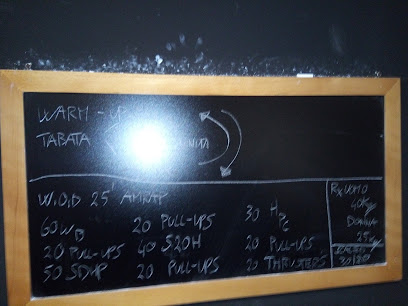 WARM - UP
TABATA
W.O.D 25' AMRAP
60 WB
20 PULL-UPS
50 SDHP
20 PULL-UPS
40 S2OH
20 PULL-UPS
30 HPC
20 PULL-UPS
20 THRUSTERS
RX UOMO
40Kg
DONNA
25
30/20